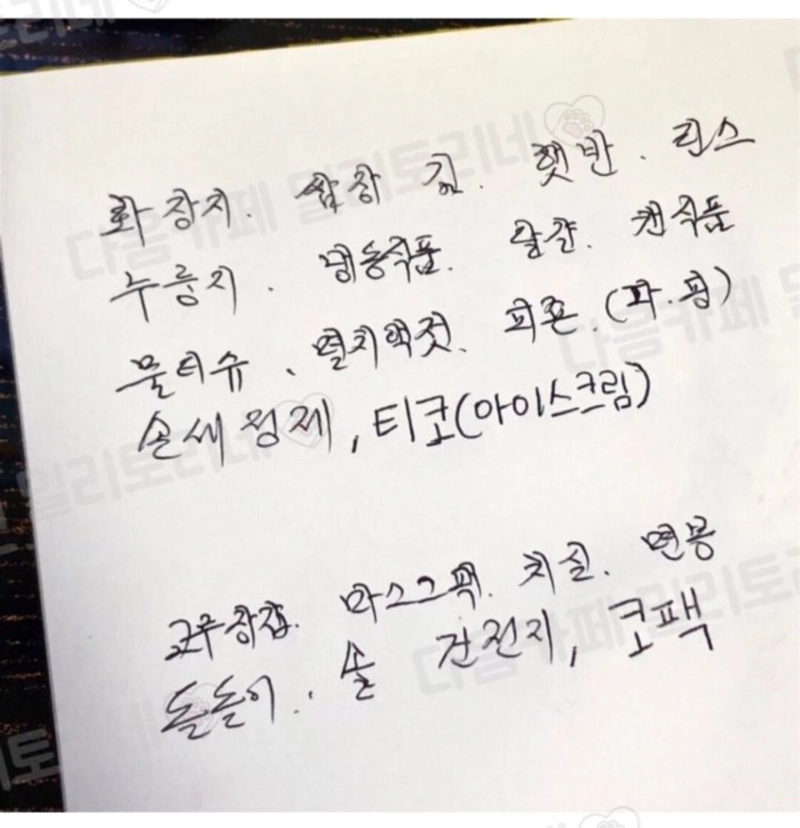 화장지. 쌈장 김. 햇반. 린스
누룽지. 냉동식품. 달걀. 캔식품
물티슈. 멸치액젓. 피죤. (파.핑)
손세정제, 티코(아이스크림)
고무장갑. 마스크팩. 치실. 면봉
돌돌이.. 솔 건전지, 코팩
다음카페 밀리토리네